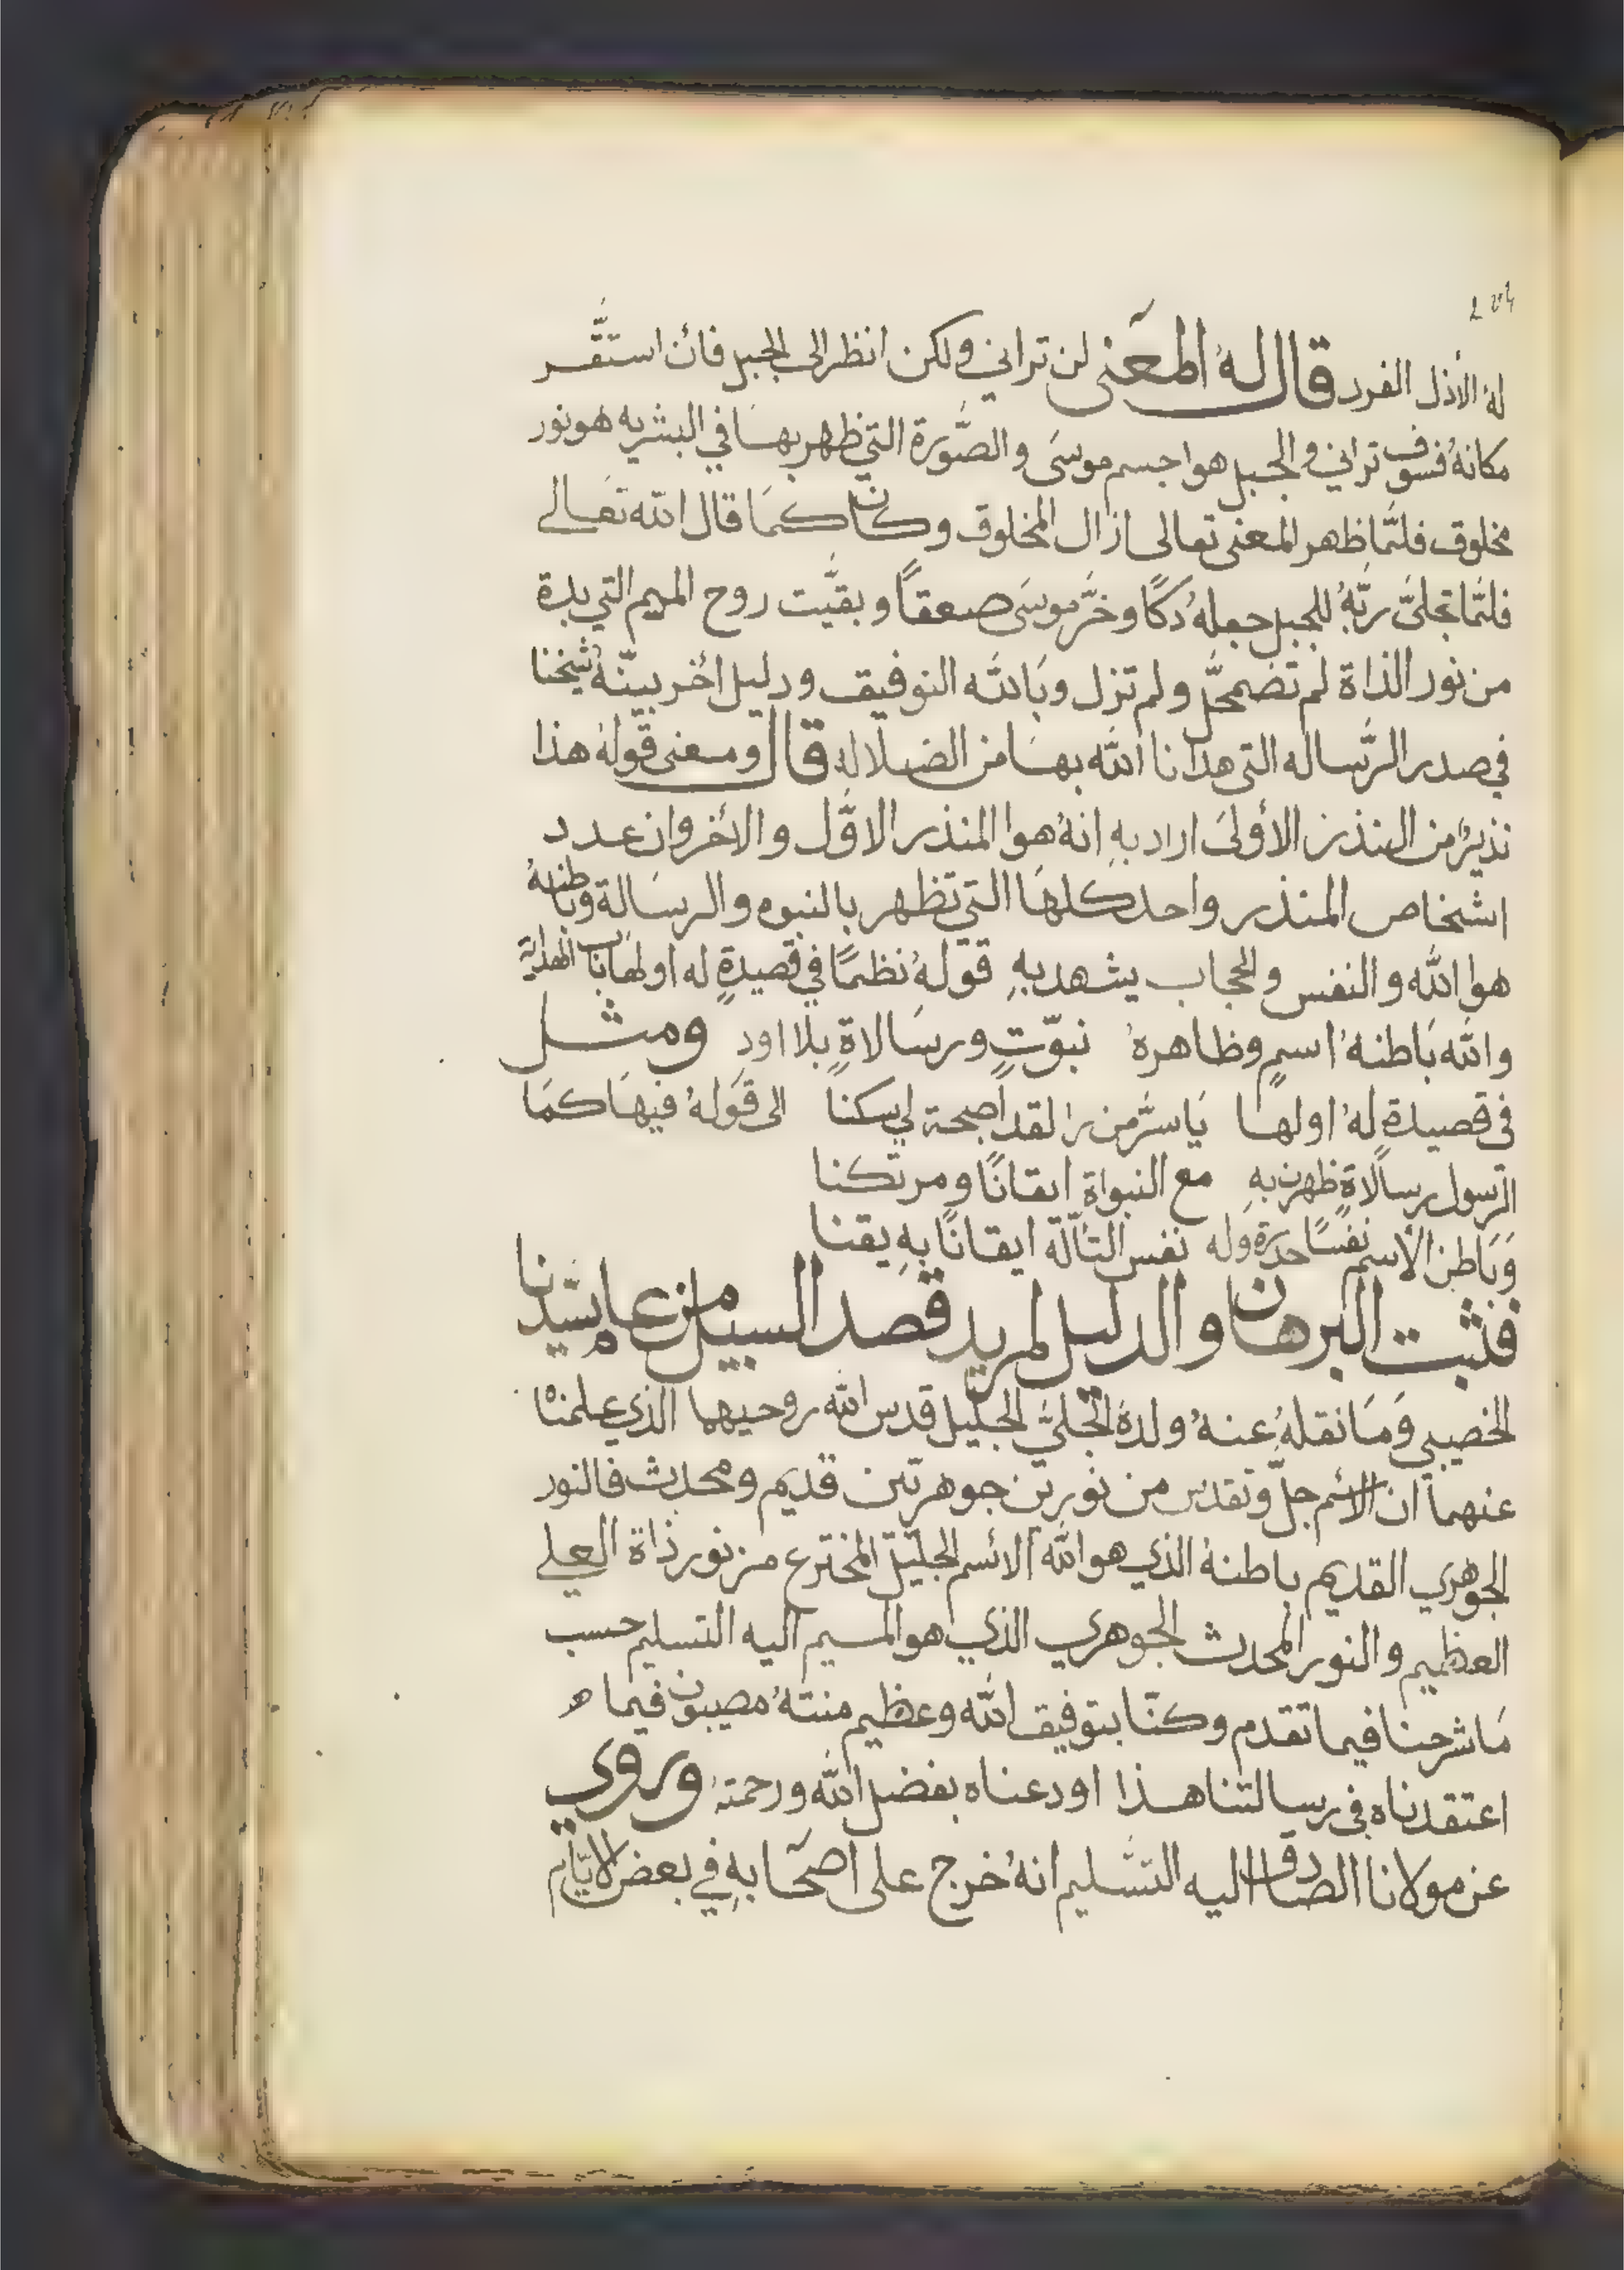 له الأزل الفرد قال له المعنى لن تراني ولكن انظر الى الجبل فأن استقّر
مكانهُ فسوف تراني والجبل هوا جسم موسَى والصّورة التي ظهر بهَا في البشريه هو نور
مخلوق فلمَّا ظهر المعنى تعالى ازال المخلوق وكان كمَا قال الله تعَالى
فلمَّا تجلىَّ ربّهُ للجبل جعلهُ دكاً وخرَّ موسَى صعقاً وبقَّيت روح الميم التي بدة
من نور الذاة لم تضمحلَّ ولم تزل وبَالله التوفيق ودليل اخُر بينّهُ شيخنا
في صدر الرَّساله التي هدانا الله بهَا من الضلاله قال ومعنى قولهُ هذا
نذيرٌ من النذر الأولىَ اراد بهِ انهُ هوا المنذر الاوَّل والأخر وان عدد
اشخاص المنذر واحد كلهَا التي تظهر بالنبوه والرسَالة وباطنهُ
هوا الله والنفس والحجاب يشهد بهِ قولهُ نظمًا في قصيدةٍ له اولهَا باب الهداية
والله بَاطنهُ اسمٍ وظاهرهُ نبوّتٍ ورسَالاةٍ بلا اودٍ ومثل
في قصيدةٍ لهُ اولها يَا سرَّ من را لقد اصبحة لي سكناً الى قولهُ فيهَا كمَا
الرّسول رسالاةٍ ظهرن بهِ مع النبواة ايقانًا ومرتكنا
وَبَاطن الأسم نفسًا حدرة وله نفس التألّة ايقانًا بهِ يقنا
فثبت البرهان والدليل لمريد قصد السبيل من عام سيّدنا
الخصيبي وَمَا نقلهُ عنهُ ولدهُ الجَليَّ الجليل قدس الله روحيهما الذي علمناه
عنهما ان الأسم جلَّ وتقدس من نورين جوهرتين قديم ومحدث فالنور
الجوهري القديم باطنهُ الذي هو الله الائسم الجليل المخترع من نور ذاة العلي
العظيم والنور المحدث الجوهري الذي هو الميم اليه التسليم حسب
مَا شرحنا فيما تقدم وكنّا بتوفيق الله وعظيم منتهُ مصيبون فيما
اعتقدناه في رسالتنا هذا اودعناه بفضل الله ورحمتهُ وروي
عن مولانا الصَادق اليه التسْليم انهُ خرج على اصحَابهِ في بعض الايّام